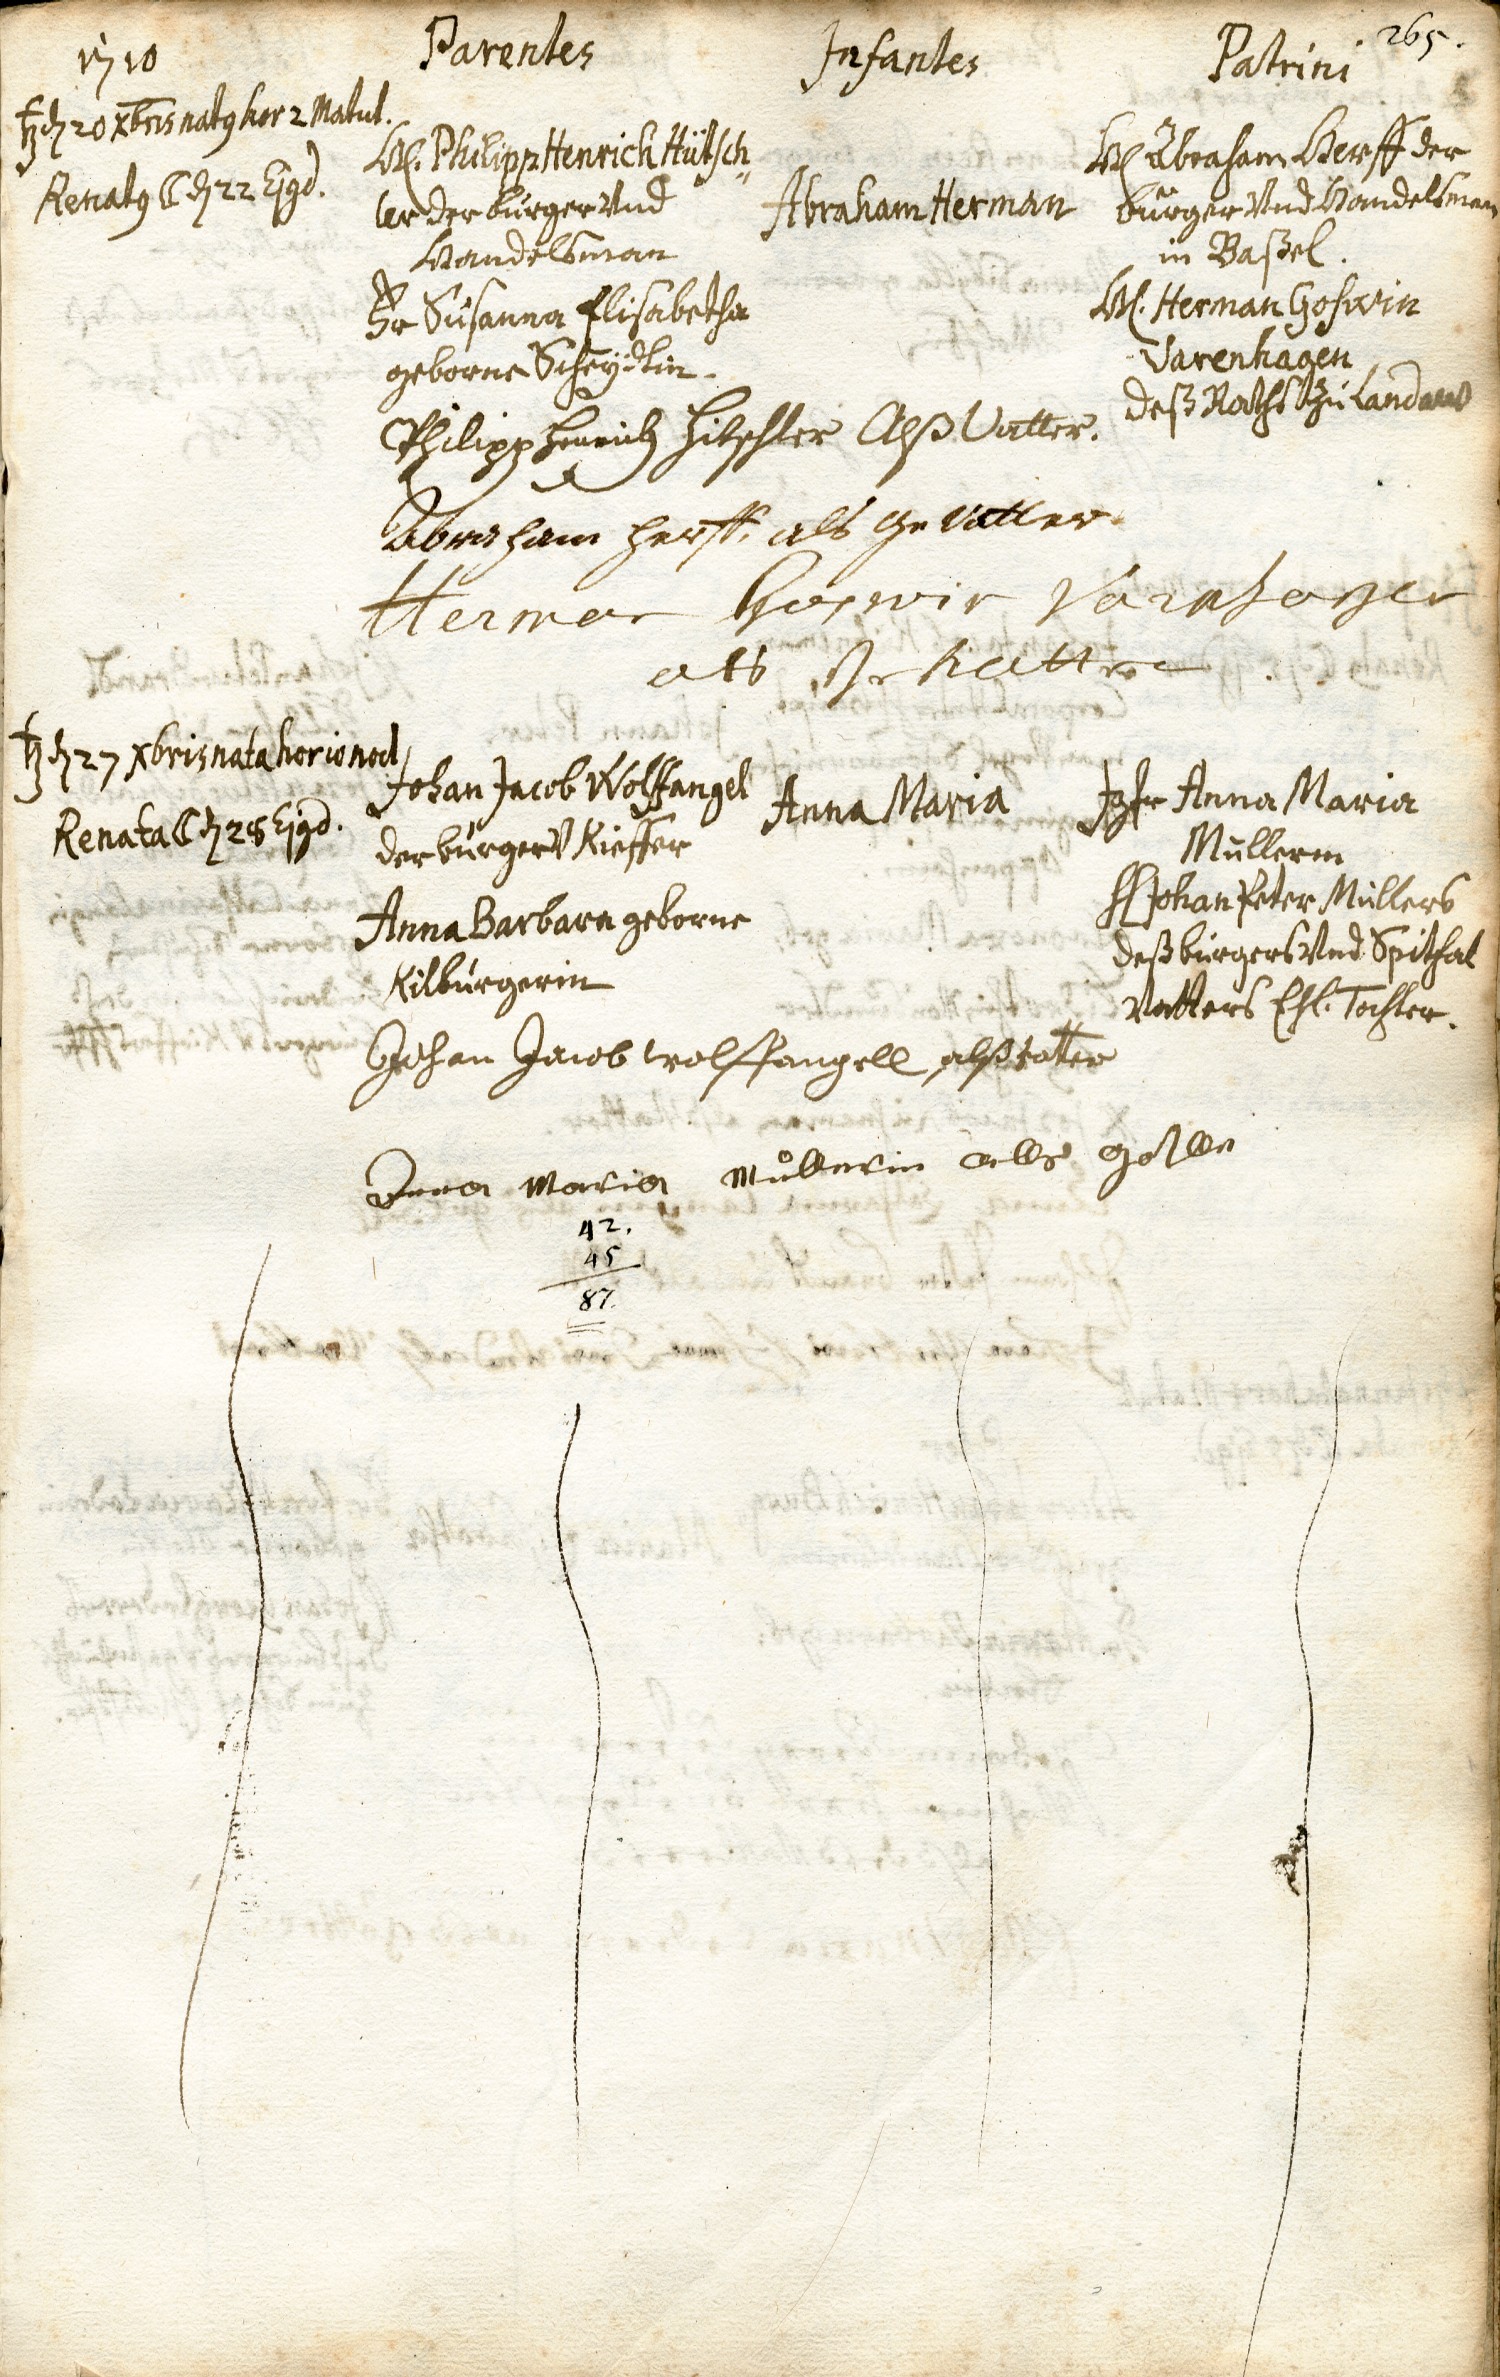 265.
1710 Parentes Infantes Patrini
♄ d 20 Xbris nat9 hor 2 Matut.
Renat9 ☾ d 22 Ejgd.
H. Philipp Henrich Hütsch„
ler der burger Vnd
Handelsman
Fr Susanna Elisabetha
geborne Scheydtin.
Abraham Herman
H Abraham Herff der
burger Vnd Handelsman
in Baßel.
H. Herman Goswin
Varenhagen
deß Raths Zu Landaw
Philipp Henrich Hitschler Alß Vatter.
Abraham Herff. als Gevatter.
Herman Goswin Varnhagen
als Gevatter
♄ d 27 Xbris nata hor 10 noct
Renata ☾ d 28 Ejgd.
Johan Jacob Wolffangel
der burger V Kieffer
Anna Barbara geborne
Kilburgerin
Anna Maria
Jgfr Anna Maria
Mullerin
H Johan Peter Mullers
deß burgers Vnd Spithal
Vatters Ehl. Tochter.
Johan Jacob wolffangell alß vatter
Anna Maria Mullerin alls gothe
42.
45
87.